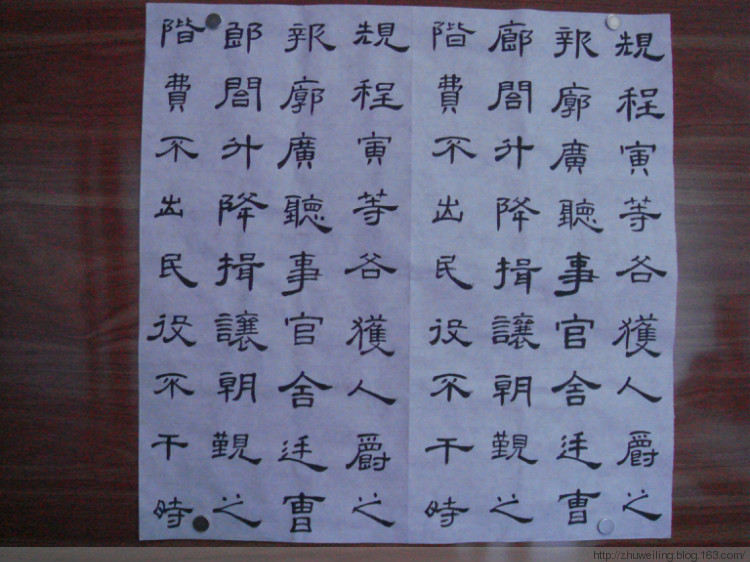 規程寅等各獲人爵之
報廓廣聽事官舍廷曹
廊閤升降揖讓朝覲之
階費不出民役不干時
規程寅等各獲人爵之
報廓廣聽事官舍廷曹
郎閤升降揖讓朝覲之
階費不出民役不干時
http://zhuweiling.blog.163.com/